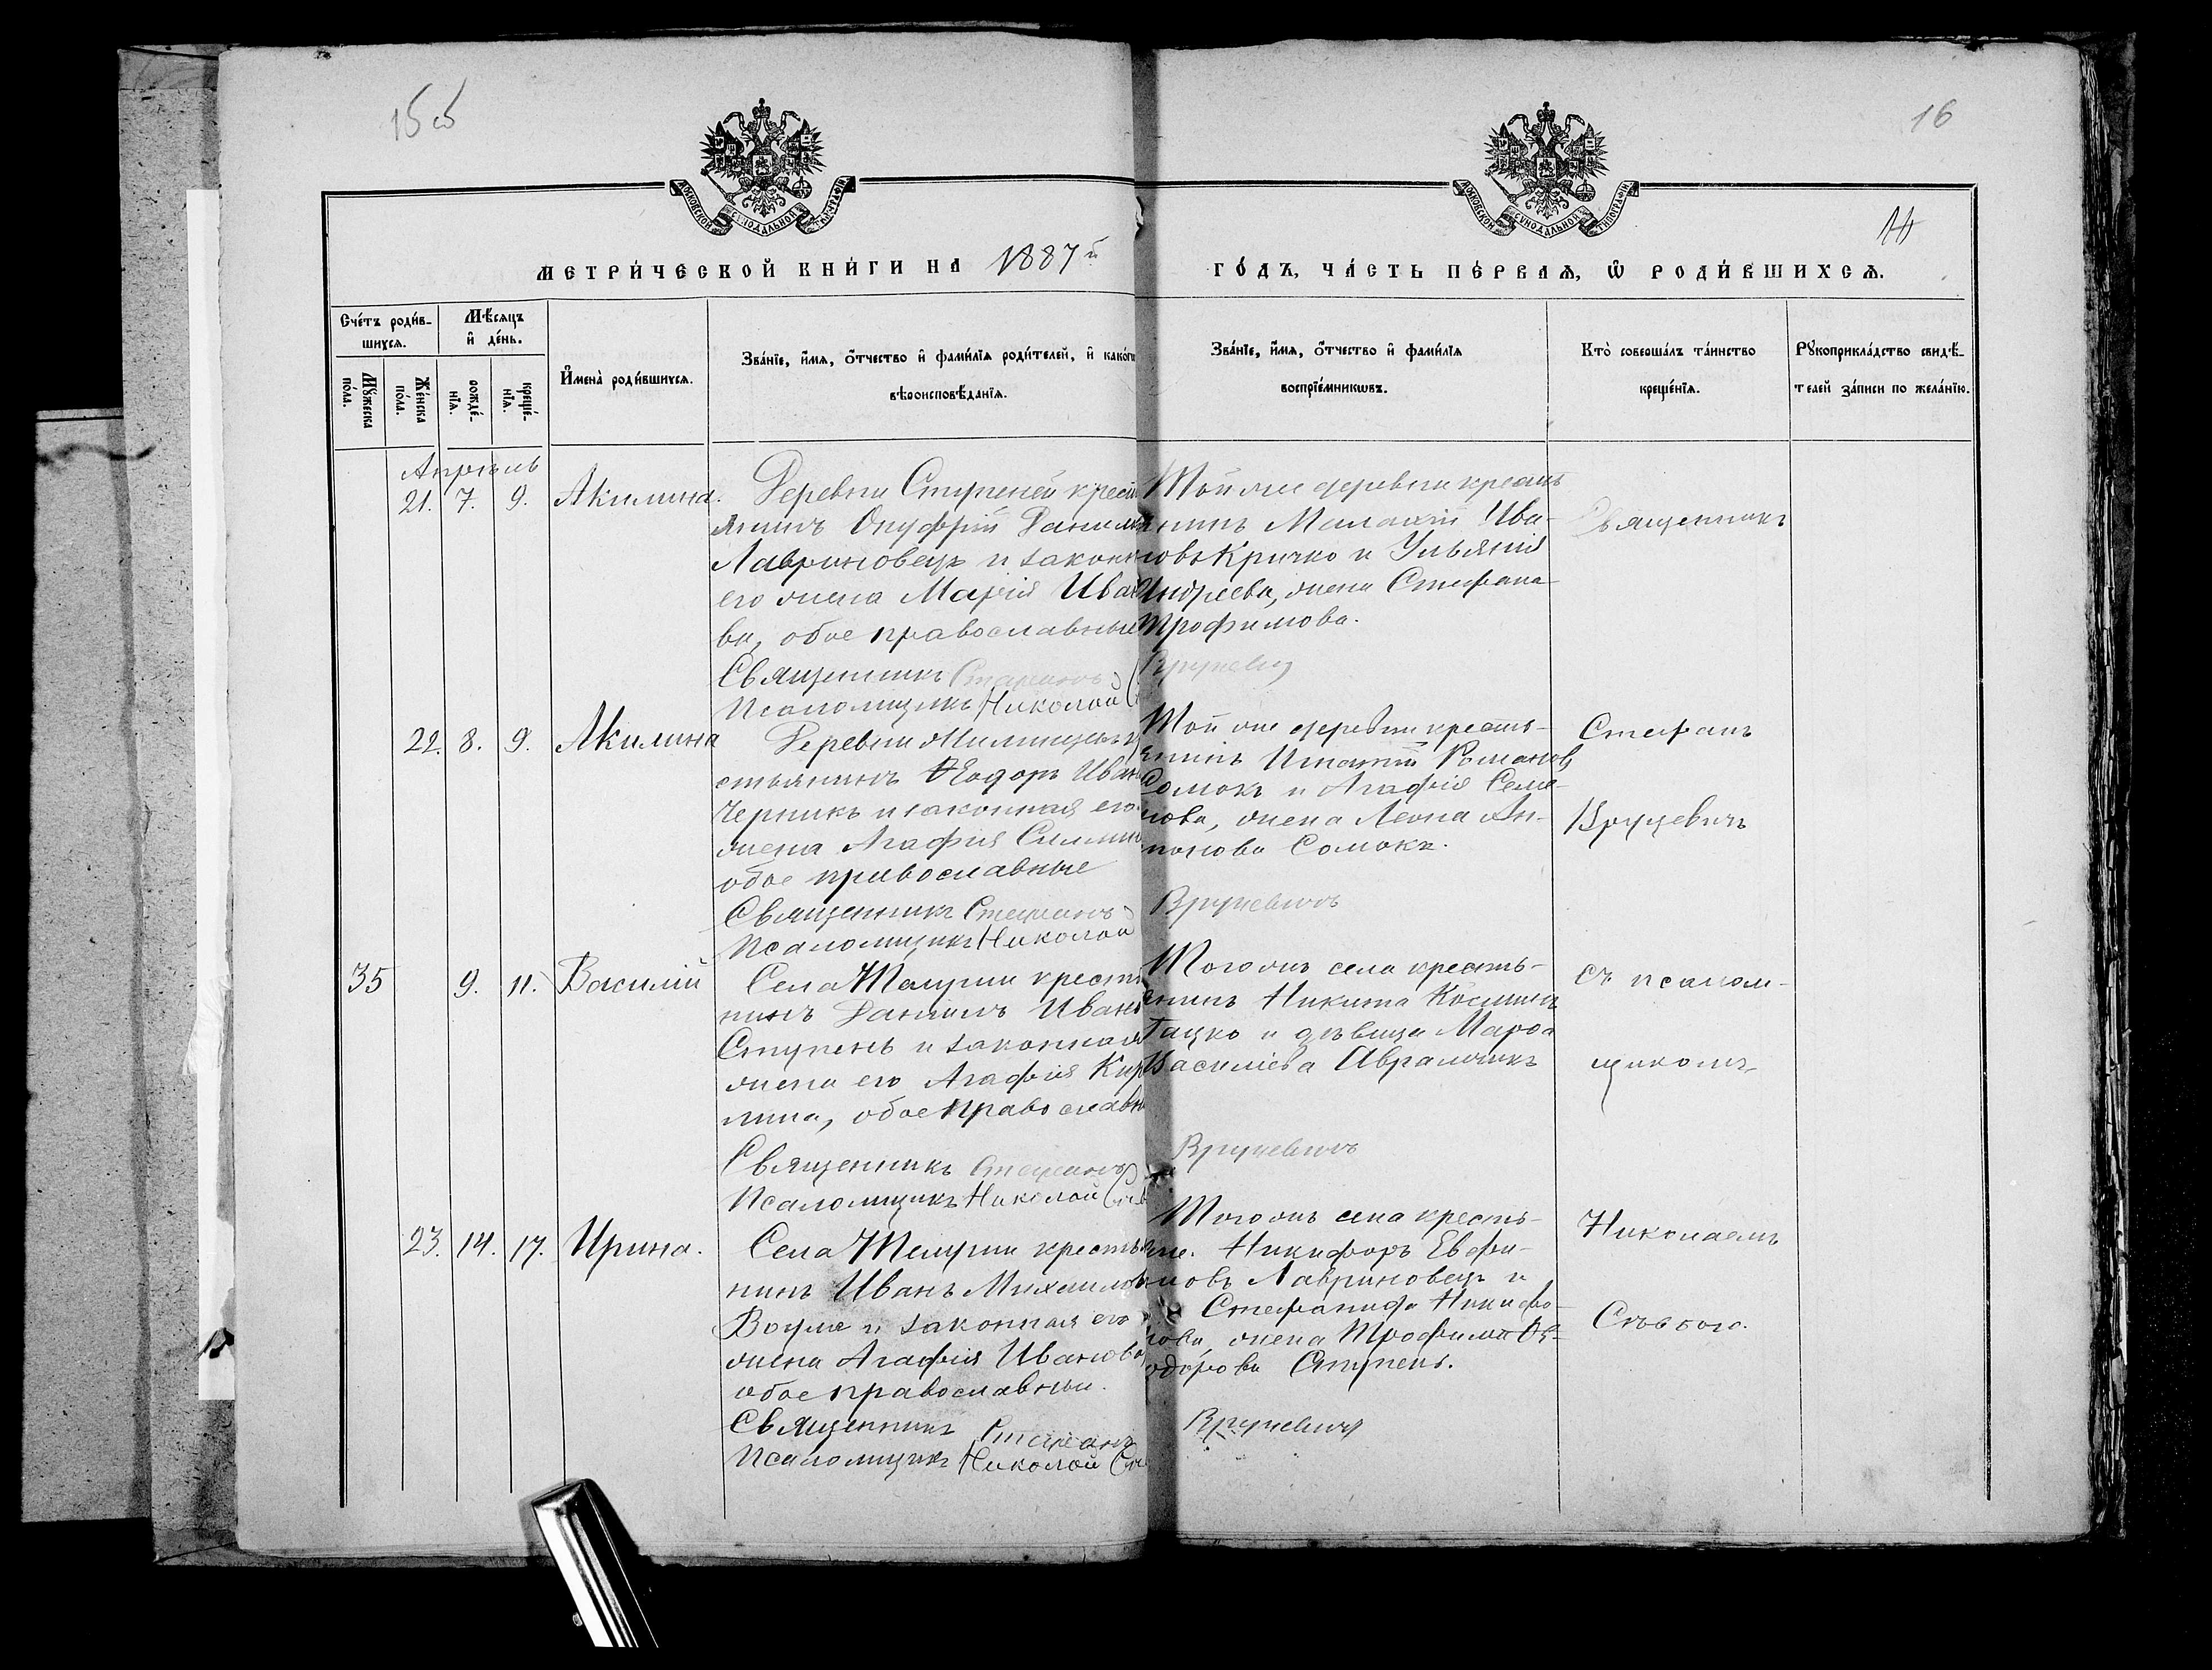 15об
16
МОСКОВСКОЙ СѴНОДАЛЬНОЙ ТИПОГРАФІИ
МОСКОВСКОЙ СѴНОДАЛЬНОЙ ТИПОГРАФІИ
МЕТРИ́ЧЕСКОЙ КНИ́ГИ НА 1887й
ГО́ДЪ, ЧА́СТЬ ПЕ́РВАѦ, Ѡ҆ РОДИ́ВШИХСѦ.
Сче́тъ роди́в-
шихсѧ.
Мѣ́сѧцъ
и҆ де́нь.
Мꙋ́жеска
по́ла.
Же́нска
по́ла.
рожде́-
нїѧ.
креще́-
нїѧ.
И҆мена̀ роди́вшихсѧ.
Зва́нїе, и҆́мѧ, ѻ҆́тчество и҆ фами́лїѧ роди́телей, и҆ како́гѡ
вѣроисповѣ́данїѧ.
Зва́нїе, и҆́мѧ, ѻ҆́тчество и҆ фами́лїѧ
воспрїе́мникѡвъ.
Кто̀ соверша́лъ та́инство
креще́нїѧ.
Рꙋкоприкла́дство свидѣ́-
телей за́писи по жела́нїю.
Апрѣль
21. 7. 9. Акилина.
Деревни Ступеней крестья
янинъ Онуфрій Данилов
Лавриновецъ и законн
его жена Марія Ивано
ва, обое православные
Священникъ Стефанъ
Псаломщикъ Николай
Той же деревни кресть
янинъ Малахій Ива-
новъ Кричко и Ульянія
Андреева, жена Стефана
Трофимова.
Вручевич
Священникъ
22. 8. 9. Акилина
Деревни
стьянинъ Ѳеодоръ Иван
Черникъ и законная его
жена Агафія
обое православные
Священникъ Стефанъ
Псаломщикъ Николай
Той же деревни кресть-
янинъ Игнатій Романов
Сомокъ и Агафія Семе-
нова, жена Леона Ан-
тонова Сомока.
Вручевичъ
Стефанъ
Вручевичъ
35 9. 11. Василій
Села Телуши крестья
нинъ Даніилъ Ивано
Ступень и законная
жена его Агафія Кир
лина, обое православн
Священникъ Стефанъ
Псаломщикъ Николай
Того жъ села кресть-
янинъ Никита Косминъ
Гацко и дѣвица Марѳа
Василіева Аврамчикъ
Вручевичъ
съ псалом-
щикомъ
23. 14. 17. Ирина.
Села Телуши крестья
нинъ Иванъ Михаилов
и законная его
жена Агафія Иванова
обое православныи.
Священникъ Стефанъ
Псаломщикъ Николай
Того жъ села кресть-
яне. Никифоръ Евфи-
мовъ Лавриновецъ и
Стефанида Никифо-
рова, жена Трофима Ѳе-
одорова Ступень.
Вручевичъ
Николаемъ